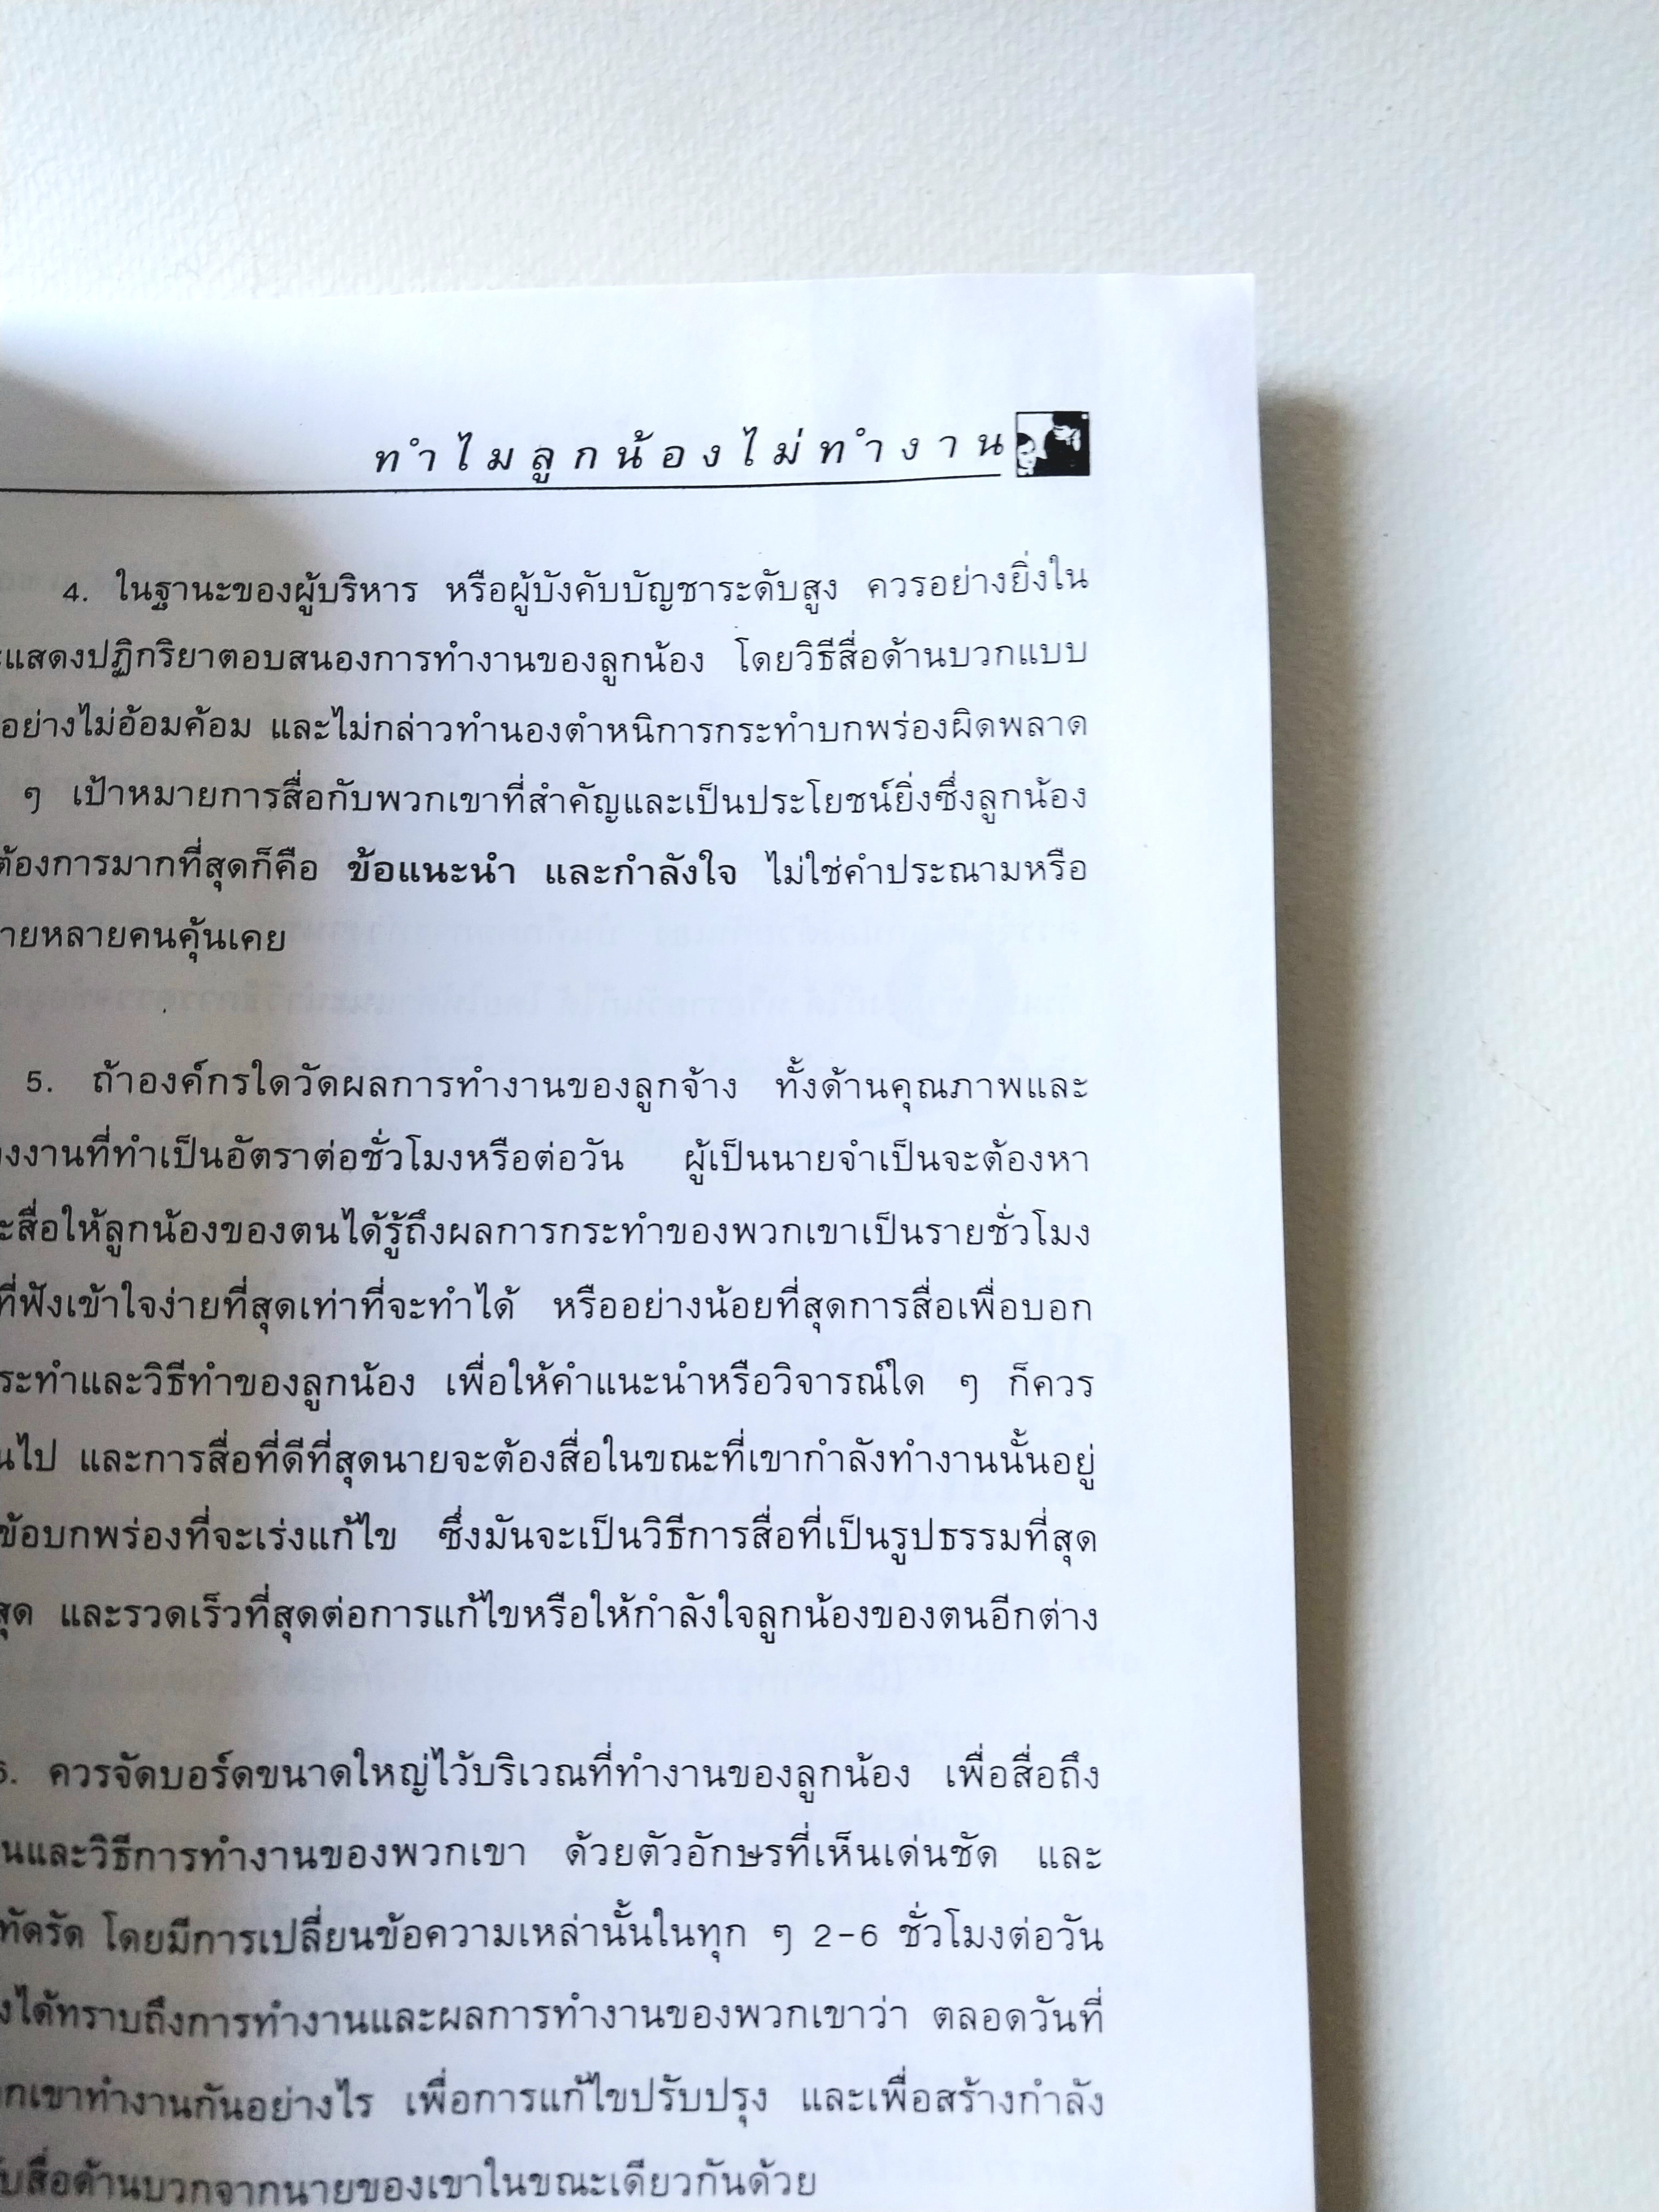 ทำไมลูกน้องไม่ทำงาน
4. ในฐานะของผู้บริหาร หรือผู้บังคับบัญชาระดับสูง ควรอย่างยิ่งใน
แสดงปฏิกริยาตอบสนองการทำงานของลูกน้อง โดยวิธีสื่อด้านบวกแบบ
อย่างไม่อ้อมค้อม และไม่กล่าวทำนองตำหนิการกระทำบกพร่องผิดพลาด
ๆ เป้าหมายการสื่อกับพวกเขาที่สำคัญและเป็นประโยชน์ยิ่งซึ่งลูกน้อง
ต้องการมากที่สุดก็คือ ข้อแนะนำ และกำลังใจ ไม่ใช่คำประณามหรือ
ายหลายคนคุ้นเคย
5. ถ้าองค์กรใดวัดผลการทำงานของลูกจ้าง ทั้งด้านคุณภาพและ
งงานที่ทำเป็นอัตราต่อชั่วโมงหรือต่อวัน ผู้เป็นนายจำเป็นจะต้องหา
ะสื่อให้ลูกน้องของตนได้รู้ถึงผลการกระทำของพวกเขาเป็นรายชั่วโมง
ที่ฟังเข้าใจง่ายที่สุดเท่าที่จะทำได้ หรืออย่างน้อยที่สุดการสื่อเพื่อบอก
ระทำและวิธีทำของลูกน้อง เพื่อให้คำแนะนำหรือวิจารณ์ใด ๆ ก็ควร
นไป และการสื่อที่ดีที่สุดนายจะต้องสื่อในขณะที่เขากำลังทำงานนั้นอยู่
ข้อบกพร่องที่จะเร่งแก้ไข ซึ่งมันจะเป็นวิธีการสื่อที่เป็นรูปธรรมที่สุด
สุด และรวดเร็วที่สุดต่อการแก้ไขหรือให้กำลังใจลูกน้องของตนอีกต่าง
6. ควรจัดบอร์ดขนาดใหญ่ไว้บริเวณที่ทำงานของลูกน้อง เพื่อสื่อถึง
นและวิธีการทำงานของพวกเขา ด้วยตัวอักษรที่เห็นเด่นชัด และ
ทัดรัด โดยมีการเปลี่ยนข้อความเหล่านั้นในทุก ๆ 2-6 ชั่วโมงต่อวัน
งได้ทราบถึงการทำงานและผลการทำงานของพวกเขาว่า ตลอดวันที่
กเขาทำงานกันอย่างไร เพื่อการแก้ไขปรับปรุง และเพื่อสร้างกำลัง
บสื่อด้านบวกจากนายของเขาในขณะเดียวกันด้วย